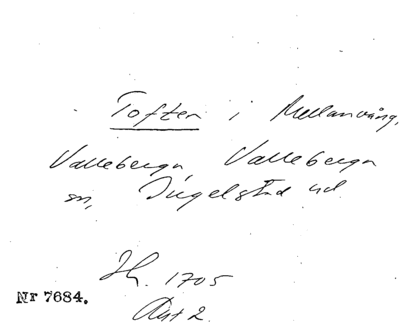 Toften i Mellanvång,
Valleberga, Valleberga
sn, Ingelstad hd
Jh. 1705
Akt 2.
Nr 7684.